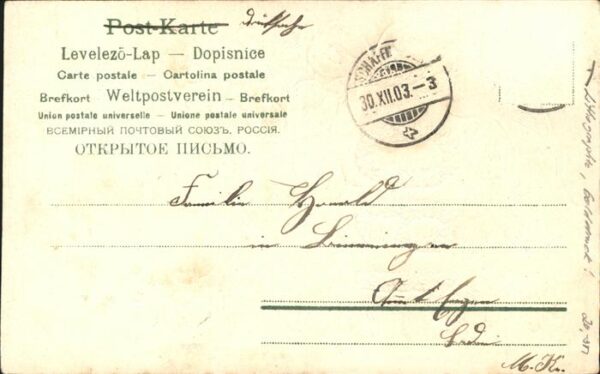 Post-Karte Drucksache
Levelező-Lap — Dopisnice
Carte postale — Cartolina postale
Brefkort — Weltpostverein — Brefkort
Union postale universelle — Unione postale universale
ВСЕМІРНЫЙ ПОЧТОВЫЙ СОЮЗЪ. РОССІЯ.
ОТКРЫТОЕ ПИСЬМО.
SCHAFF
30.XII.03.–3
Familie
in Binningen
Amt Engen
Baden
M. Kr.